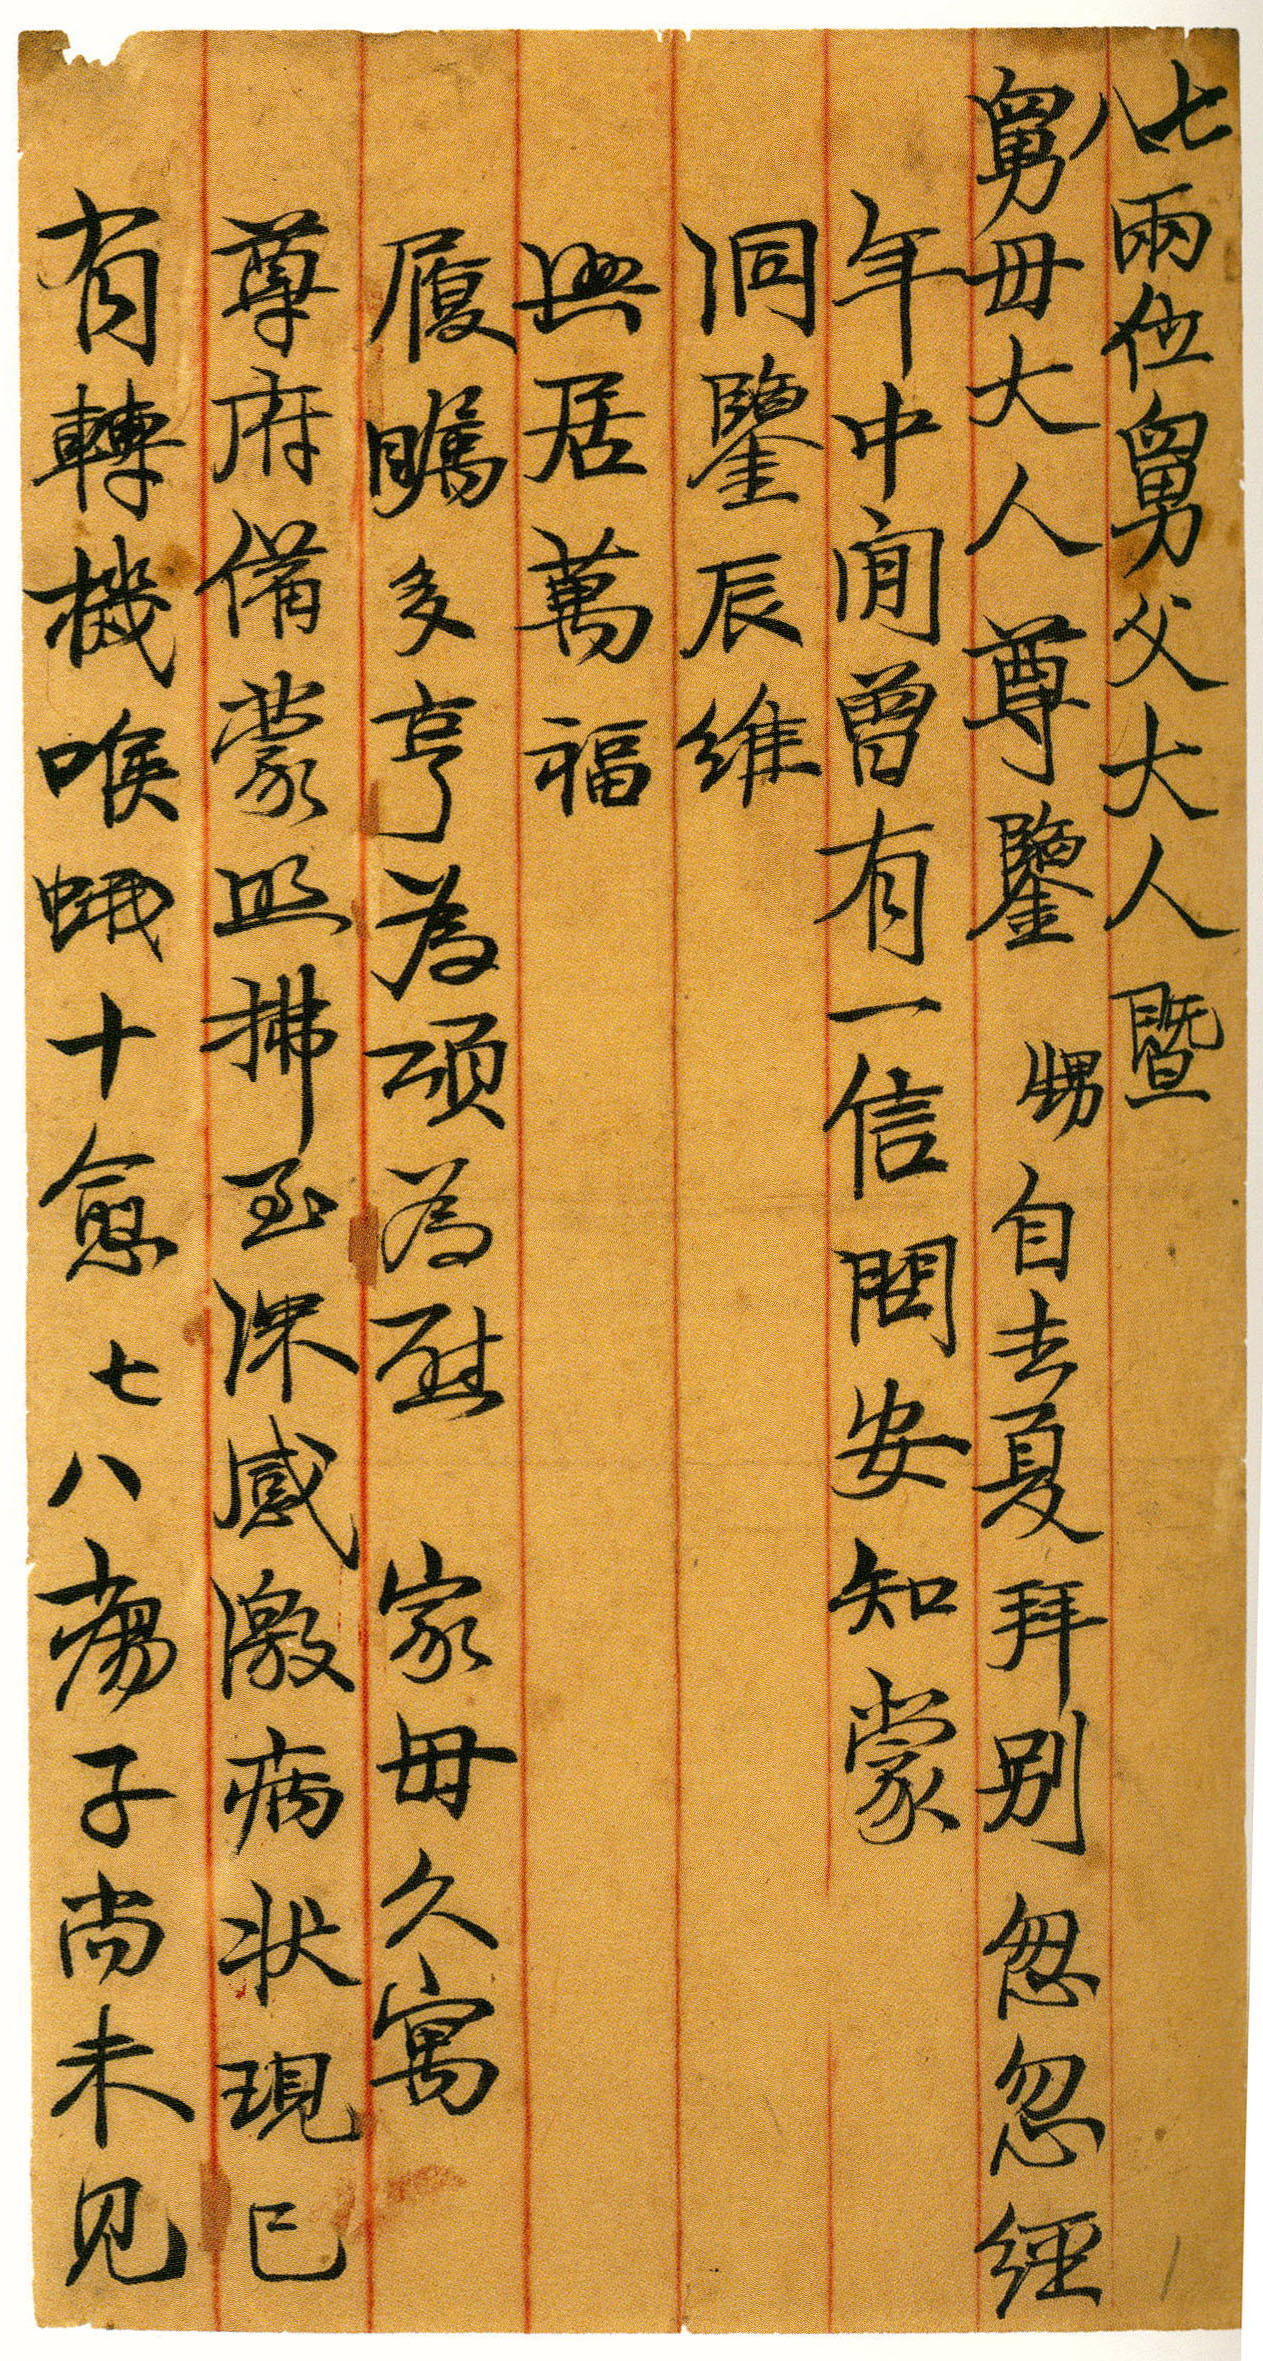 七八兩位舅父大人暨
舅母大人尊鑒 甥自去夏拜別忽忽經
年中間曾有一信問安知蒙
洞鑒辰維
興居萬福
履矚多亨為頌為慰 家母久寓
尊府備蒙照拂至深感激病狀現已
有轉機喉蛾十愈七八瘍子尚未見